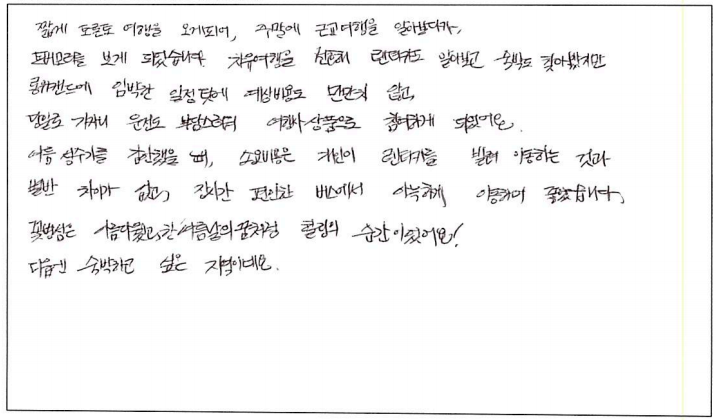 짧게 토론토 여행을 오게되어, 주말에 근교여행을 알아보다가,
토버모리를 보게 되었습니다. 자유여행을 위해 렌터카도 알아보고 숙박도 찾아봤지만
롱위캔드에 임박한 일정 탓에 예상비용도 만만치 않고,
당일로 가자니 운전도 부담스러워 여행사 상품으로 참여하게 되었어요.
여름 성수기를 감안했을 때, 소요비용은 개인이 렌터카를 빌려 이동하는 것과
별반 차이가 없고, 장시간 편안한 버스에서 아늑하게 이동하며 좋았습니다,
꽃병섬은 아름다웠고, 한여름날의 꿈처럼 힐링의 순간이었어요!
다음엔 숙박하고 싶은 지역이네요.